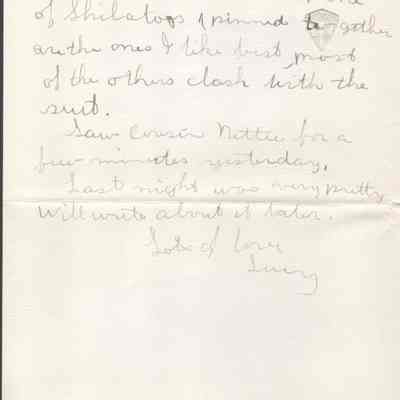 of Shilatos (pinned together
are the ones I like best, most
of the others clash with the
suit.
Saw Cousin Nettie for a
few minutes yesterday.
Last night was very pretty
will write about it later.
Lots of love
Lucy